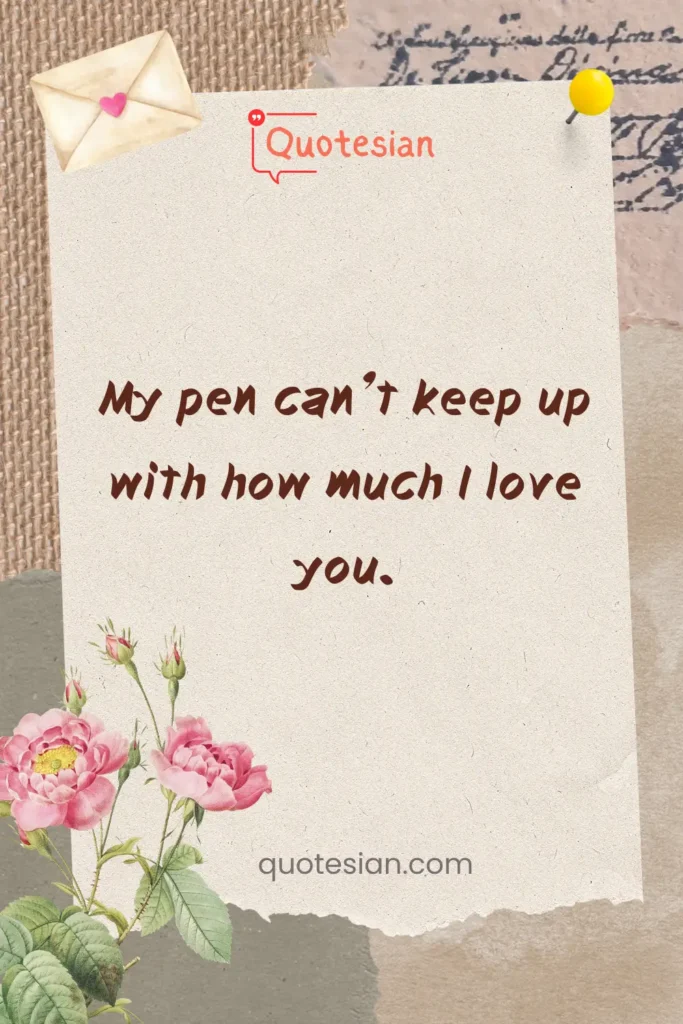 Quotesian
My pen can’t keep up
with how much I love
you.
quotesian.com